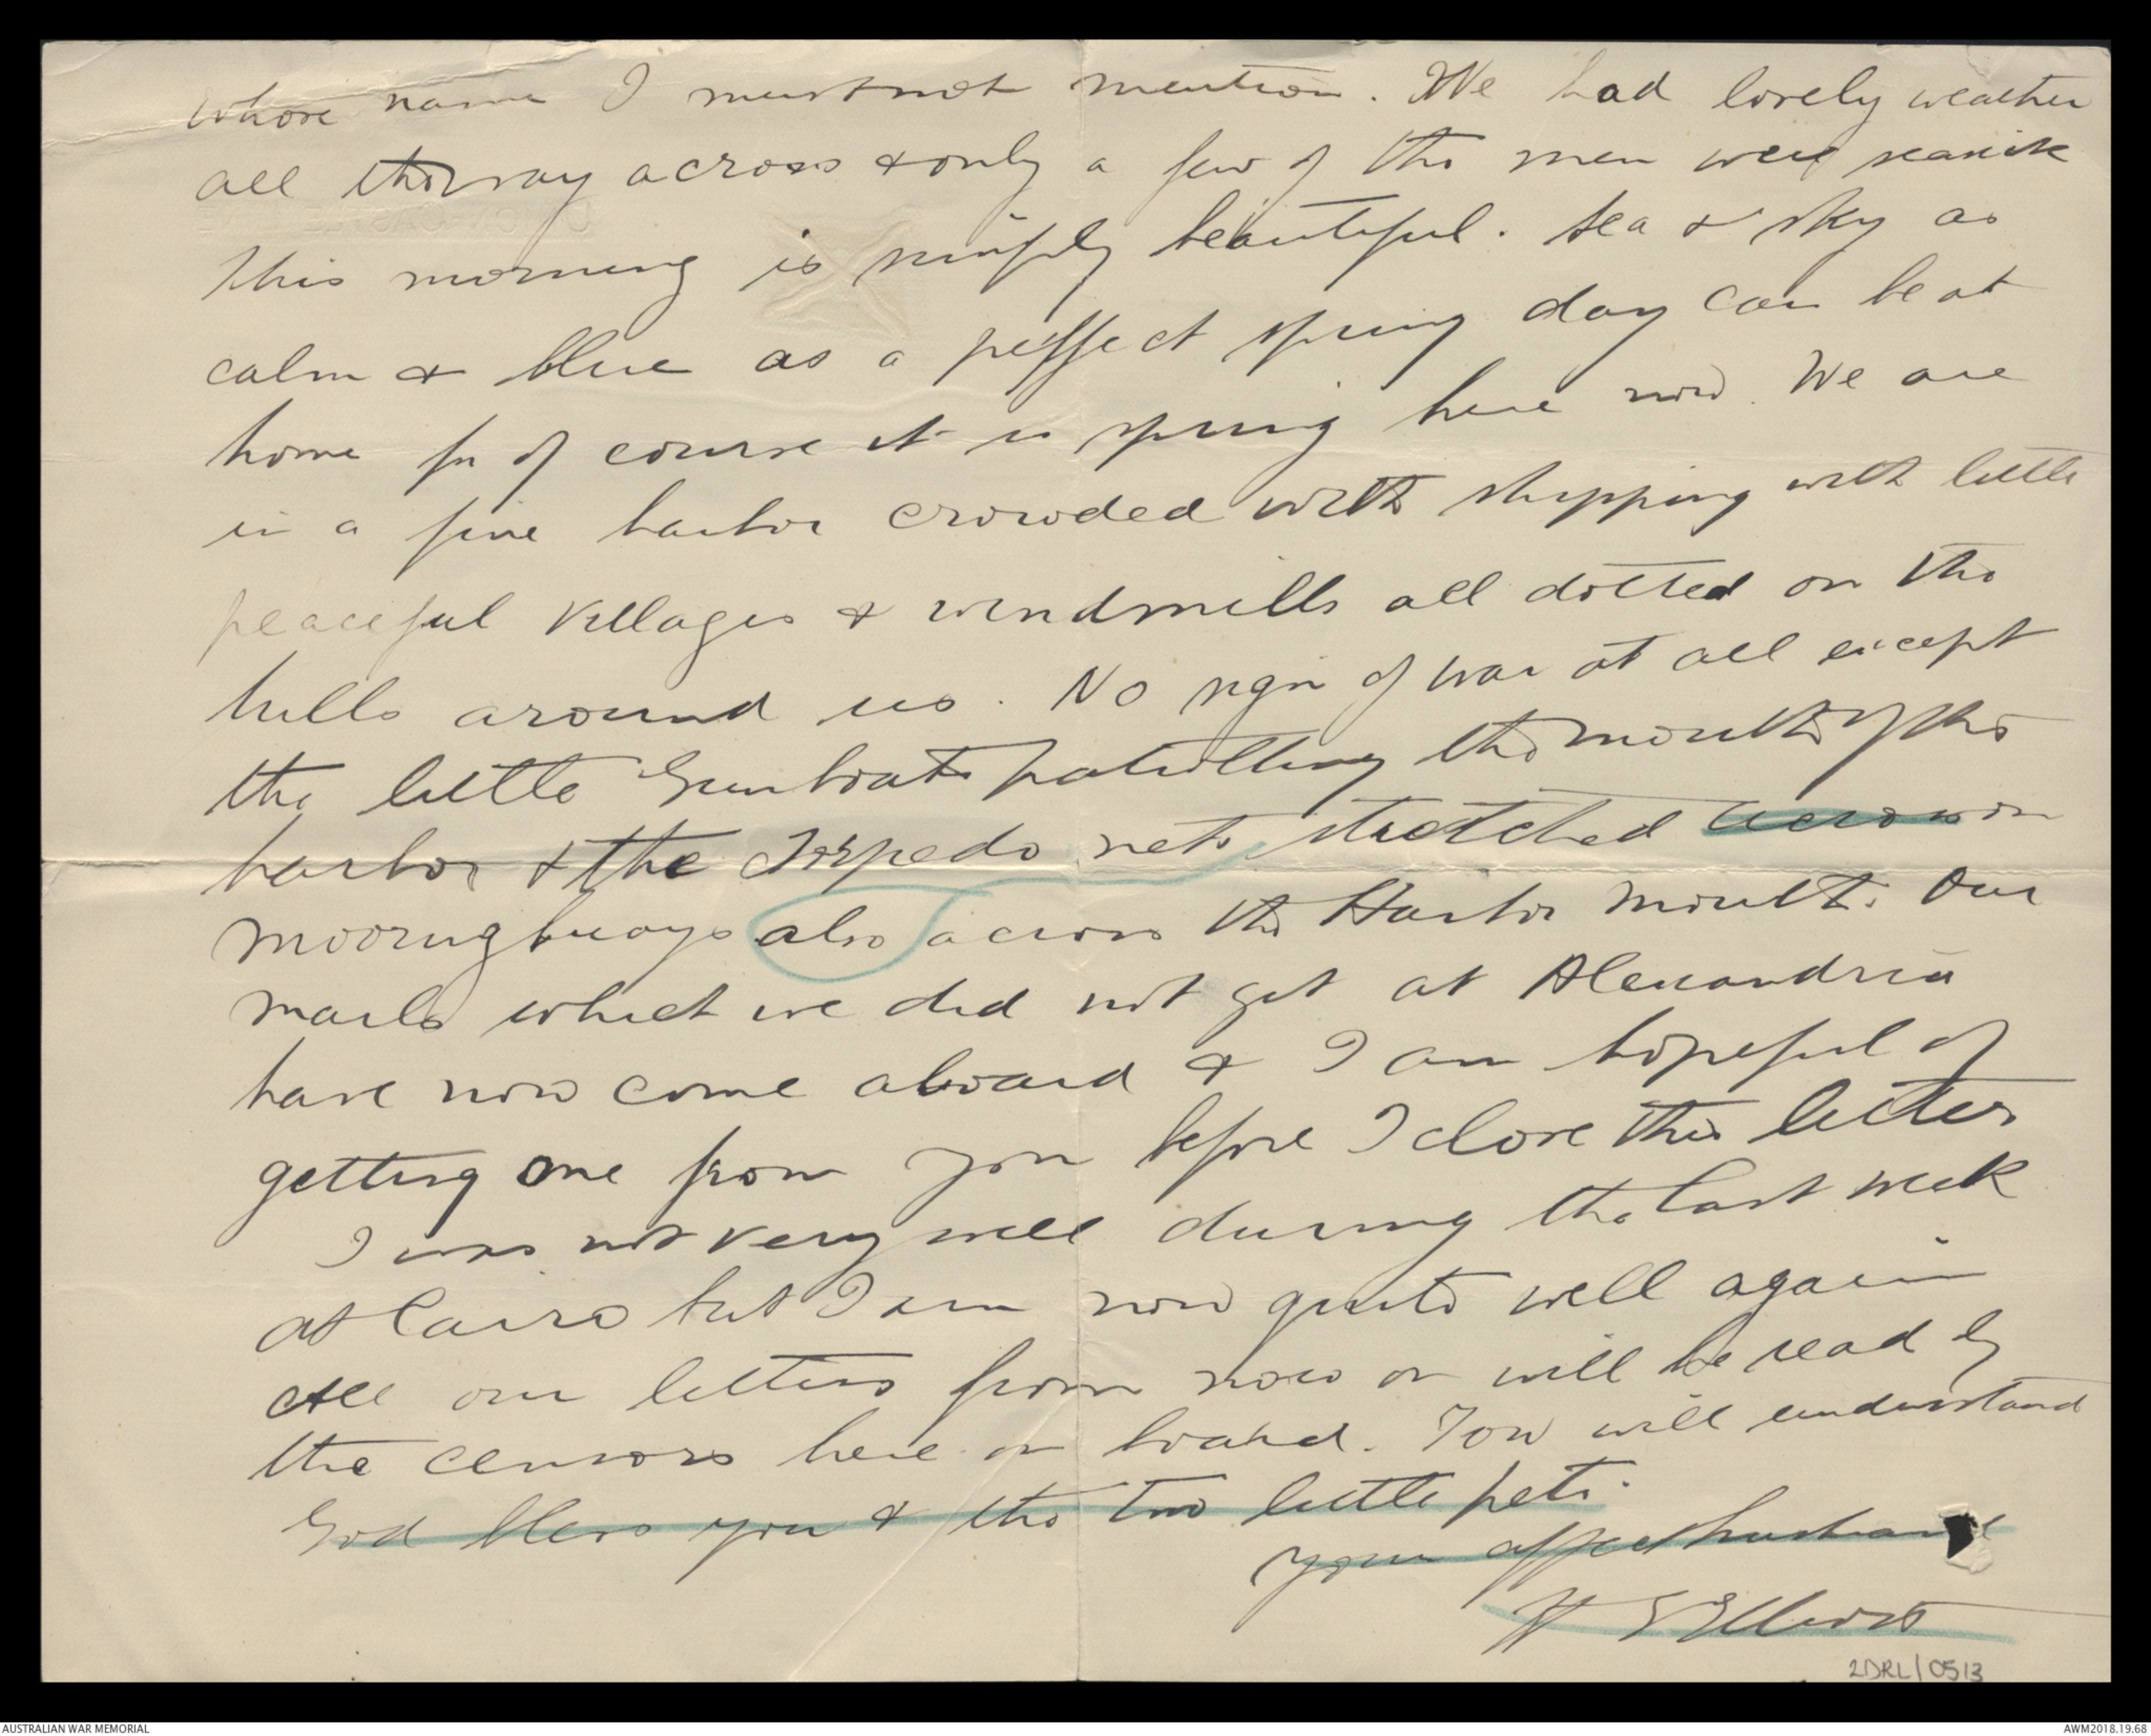 whose name I must not mention. We had lovely weather
all the way across & only a few of the men were seasick
This morning is simply beautiful. Sea & sky as
calm & blue as a perffect spring day can be at
home for of course it is spring here now. We are
in a fine harbor crowded with shipping with little
peaceful villages & windmills all dotted on the
hills around us. No sign of war at all except
the little Gunboats patrolling the mouth of the
harbor & the Torpedo nets stretched across on
mooring buoys also across the Harbor mouth. Our
mails which we did not get at Alexandria
have now come aboard & I am hopeful of
getting one from you before I close this letter
I was not very well during the last week
at Cairo but I am now quite well again
All our letters from now on will be read by
the censors here on board. You will understand
God bless you & the two little pets.
Your affect husband
H E Elliott
2DRL/0513
AUSTRALIAN WAR MEMORIAL
AWM2018.19.68